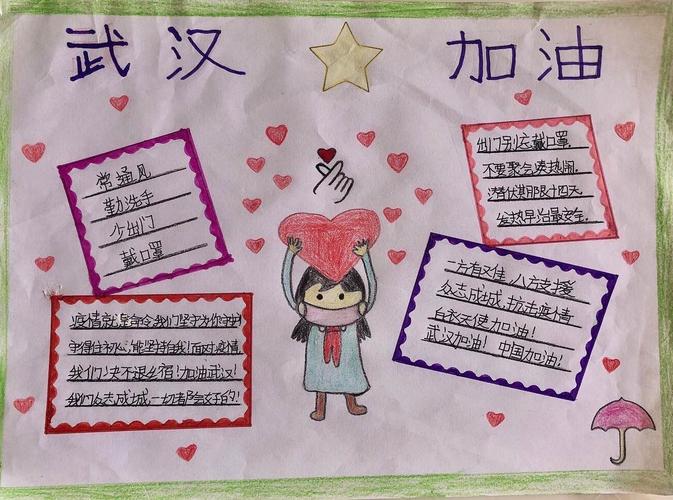 武汉 加油
常通风
勤洗手
少出门
戴口罩
出门别忘戴口罩
不要聚会凑热闹.
潜伏期限十四天
发热早治最安全.
疫情就是命令,我们坚守为你守护
守得住初心,能坚持自我!面对疫情
我们决不退缩!加油武汉!
我们众志成城,一切都会好的!
一方有难,八方支援
众志成城,抗击疫情
白衣天使加油!
武汉加油!中国加油!